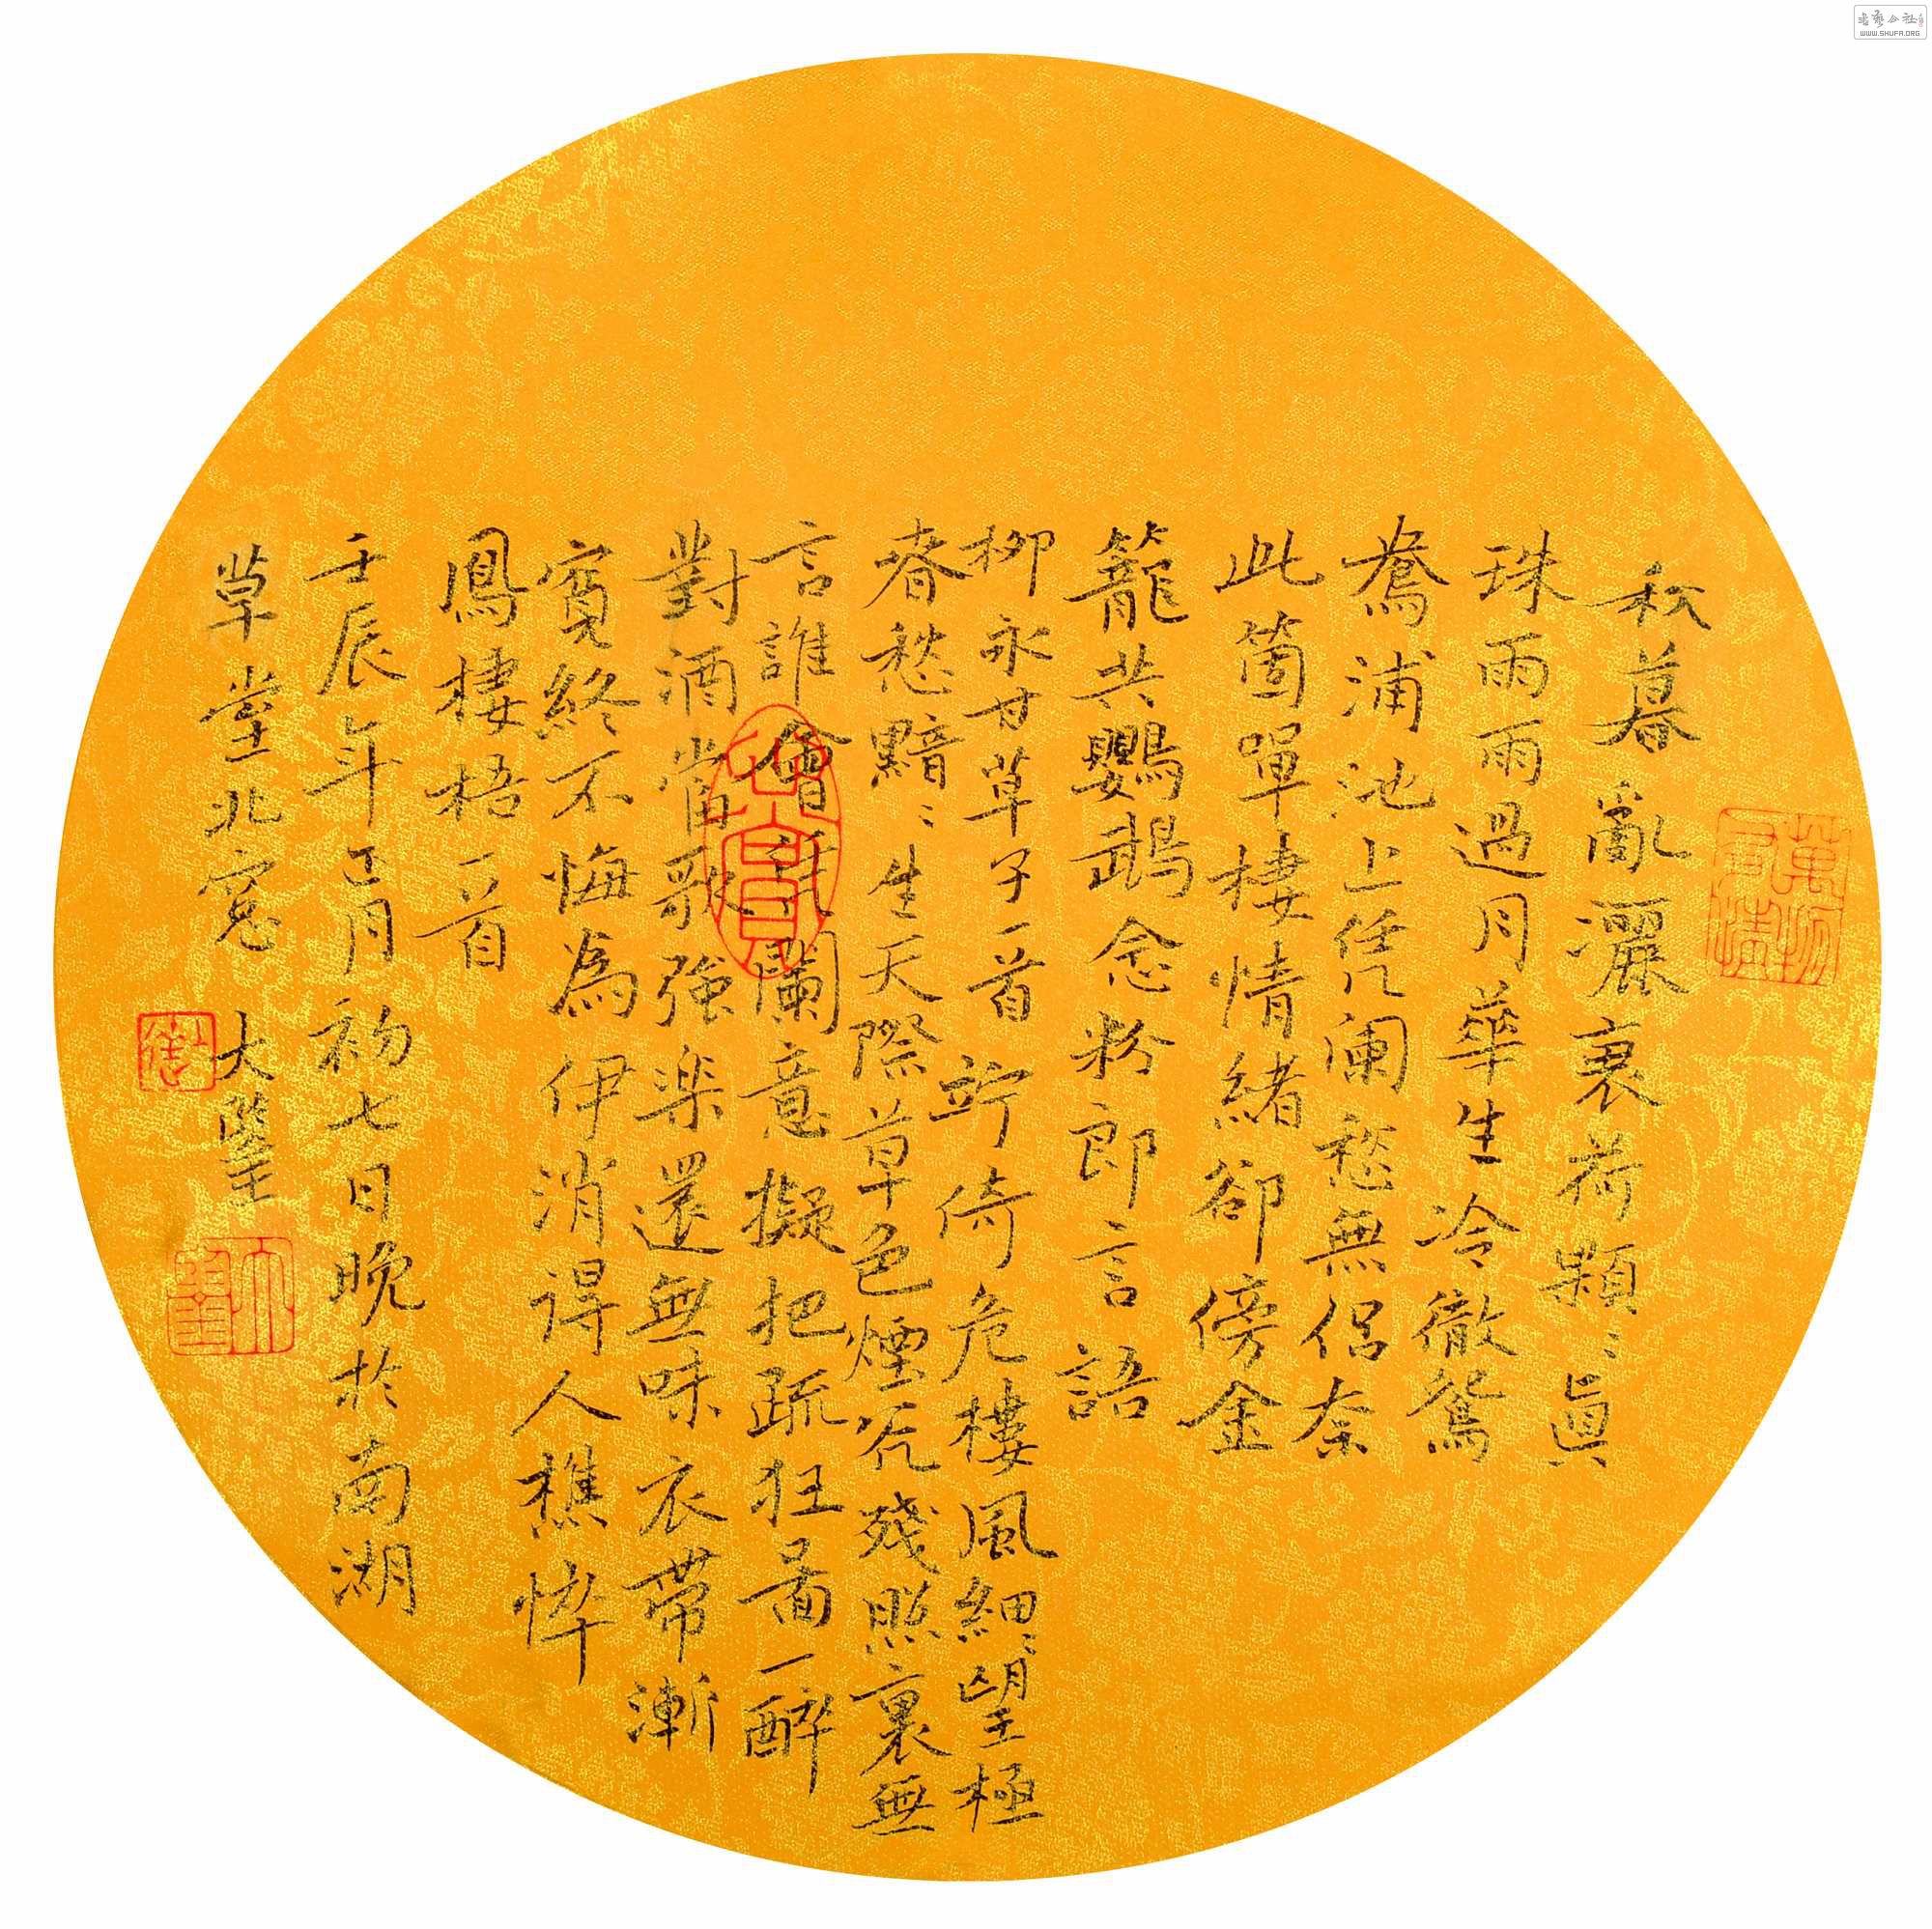 秋暮亂灑衰荷顆〻眞
珠雨雨過月華生冷徹鴛
鴦浦池上凭闌愁無侶奈
此箇單棲情緒卻傍金
籠共鸚鵡念粉郎言語
柳永甘草子一首 竚倚危樓風細〻望極
春愁黯〻生天際草色煙光殘照裏無
言誰會凭闌意擬把疏狂啚一醉
對酒當歌強楽還無味衣帶漸
寬終不悔為伊消得人樵悴
鳳棲梧一首
壬辰年正月初七日晚於南湖
草堂北窓 大
WWW.SHUFA.ORG